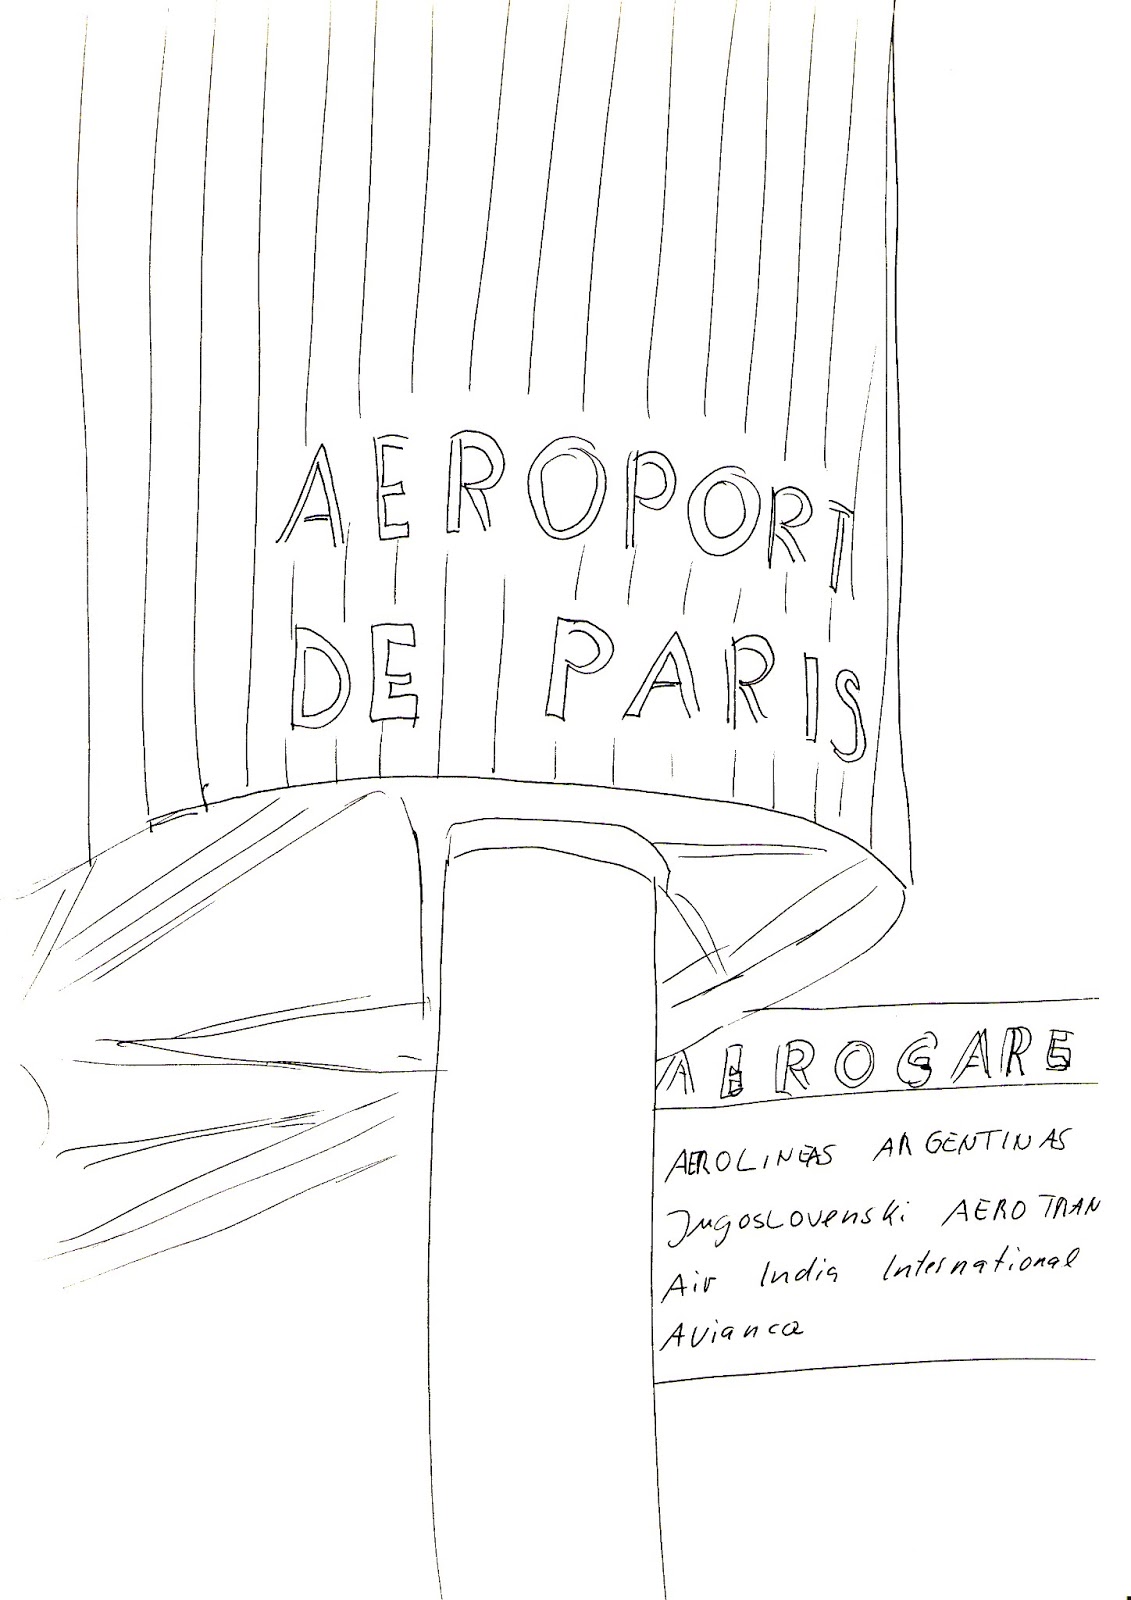 AEROPORT
DE PARIS
AEROGARE
AEROLINEAS ARGENTINAS
Jugoslovenski AERO TRAN
Air India International
Avianca